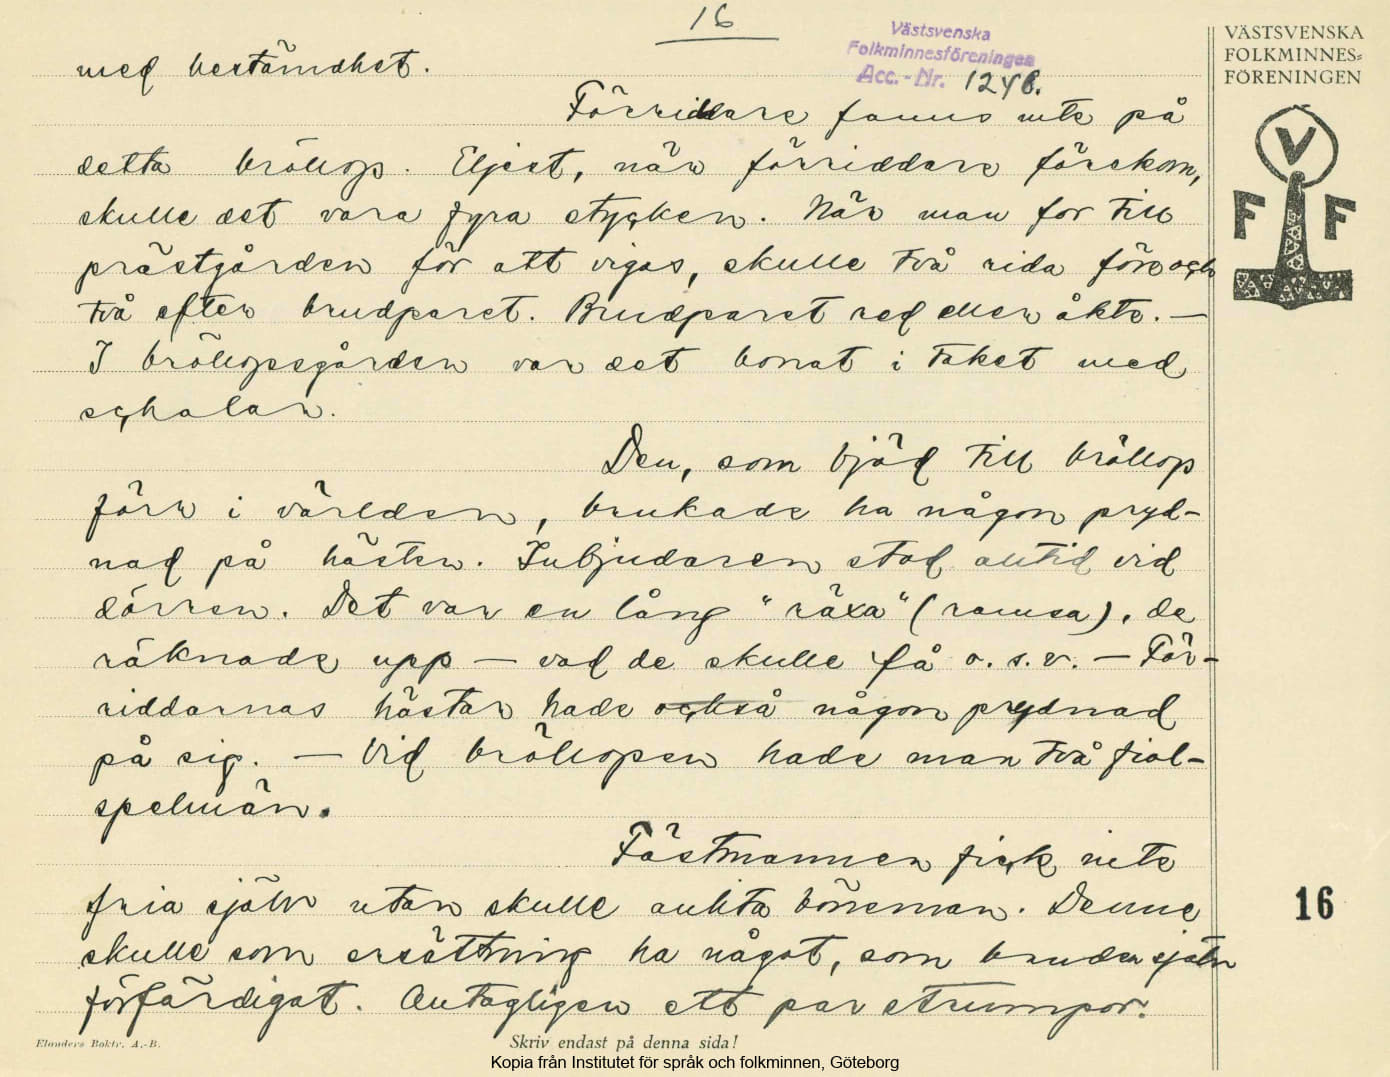 16
Västsvenska
Folkminnesföreningen
Acc.-Nr. 1248.
VÄSTSVENSKA
FOLKMINNES=
FÖRENINGEN
V
F F
med bestämdhet.
Förriddare fanns inte på
detta bröllop. Eljest, när förriddare förekom,
skulle det vara fyra stycken. När man for till
prästgården för att vigas, skulle två rida före och
två efter brudparet. Brudparet red eller åkte. —
I bröllopsgården var det bonat i taket med
schalar.
Den, som bjöd till bröllop
förr i världen, brukade ha någon pryd-
nad på hästen. Inbjudaren stod alltid vid
dörren. Det var en lång "räxa" (ramsa), de
räknade upp — vad de skulle få o.s.v. — För-
riddarnas hästar hade också någon prydnad
på sig. — Vid bröllopen hade man två fiol-
spelmän.
Fästmannen fick inte
fria själv utan skulle anlita böneman. Denne
skulle som ersättning ha något, som bruden själv
förfärdigat. Antagligen ett par strumpor.
16
Elanders Boktr. A.-B.
Skriv endast på denna sida!
Kopia från Institutet för språk och folkminnen, Göteborg